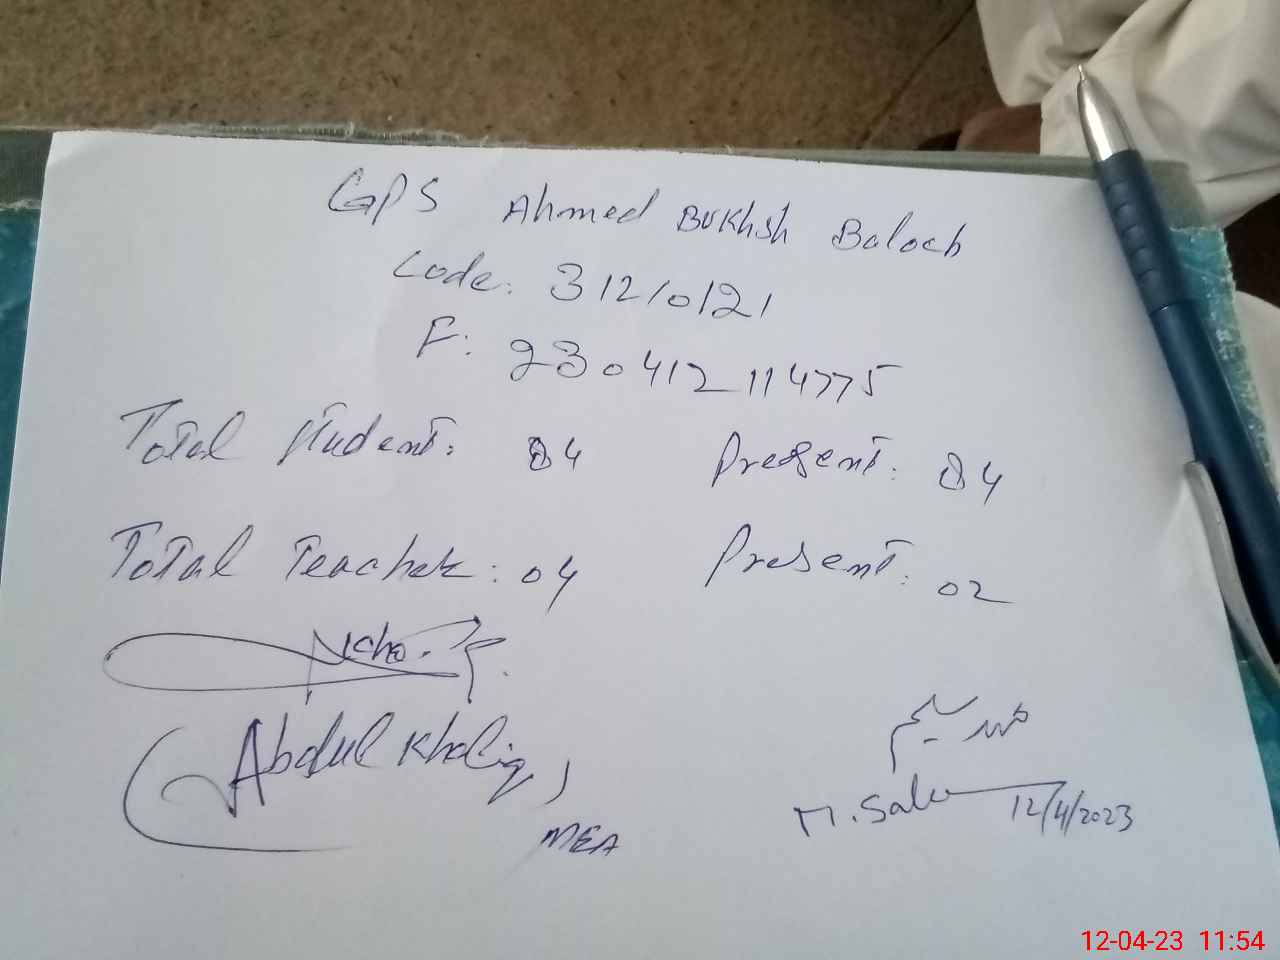 GPS Ahmed Bukhsh Baloch
Code: 31210121
F: 230412114775
Total Student: 84 Present: 84
Total Teacher: 04 Present: 02
(Abdul Khaliq)
MEA
M. Sale
12/4/2023
12-04-23 11:54